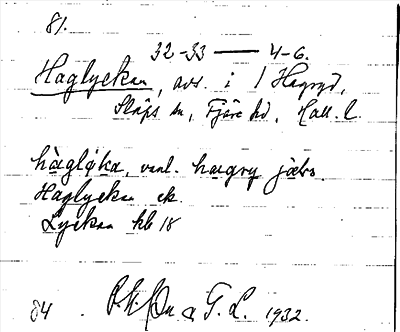 81.
32-33 — 4-6.
Haglyckan, avs. i 1 Hagryd,
Släps sn, Fjäre hd, Hall. l.
hàgløka, vanl. hagry
Haglyckan ek.
Lyckan hb 18
84 & G. L. 1932.